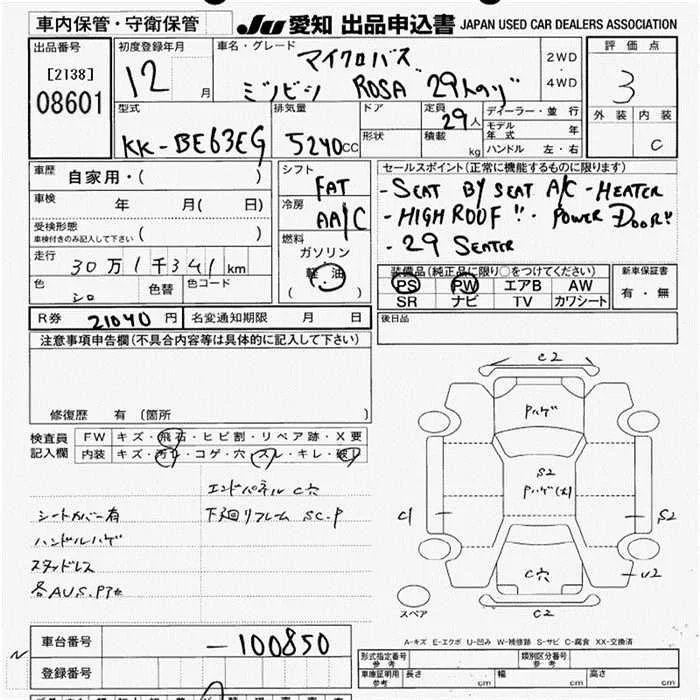 車内保管・守衛保管
JU 愛知 出品申込書 JAPAN USED CAR DEALERS ASSOCIATION
出品番号
[2138]
08601
初度登録年月
12 月
車名・グレード
マイクロバス
ミツビシ ROSA 29人のり
2WD
・
4WD
評価点
3
外装 内装
C
型式
KK-BE63EG
排気量
5240CC
ドア
形状
定員
29人
積載
kg
ディーラー・並行
モデル年式 年
ハンドル 左・右
車歴 自家用・( )
車検 年 月( 日)
受検形態
車検付きのみ記入して下さい ( )
走行
30万1千341km
色 シロ
色替
色コード
シフト
FAT
冷房
AA/C
燃料
ガソリン
軽・油
( )
セールスポイント(正常に機能するものに限ります)
- SEAT BY SEAT A/C - HEATER
- HIGH ROOF !! · POWER DOOR!!
- 29 SEATER
装備品(純正品に限り○をつけてください)
PS PW エアB AW
SR ナビ TV カワシート
新車保証書
有・無
R券 21040円
名変通知期限 月 日
後日品
注意事項申告欄(不具合内容等は具体的に記入して下さい)
修復歴 有 (箇所 )
検査員
記入欄
FW キズ・飛石・ヒビ割・リペア跡・X要
内装 キズ・汚レ・コゲ・穴・スレ・キレ・破レ
エンドパネル C穴
シートカバー有
下廻リフレーム SC.P
ハンドルハゲ
スタッドレス
各AU.S.P3大
C2
Pハゲ
S2
Pハゲ(大)
C1
S2
C穴
U2
C2
スペア
A-キズ E-エクボ U-凹み W-補修跡 S-サビ C-腐食 XX-交換済
車台番号 -100850
登録番号
型式指定番号
参考
類別区分番号
参考
車庫証明用
参考
長さ cm
幅 cm
高さ cm